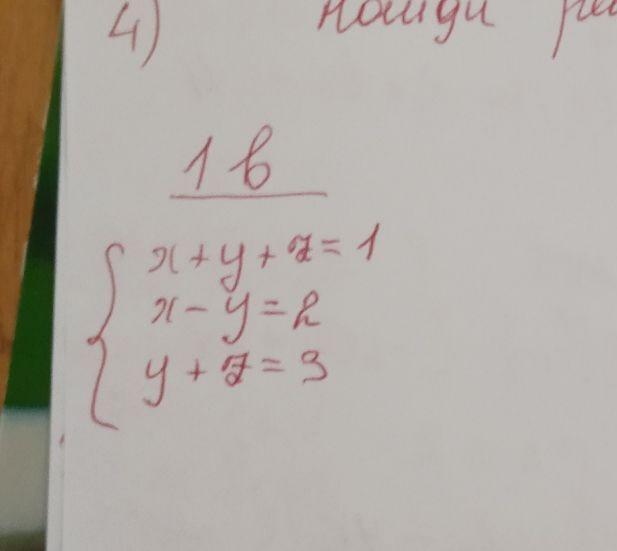 4) Найди
1 в
x + y + z = 1
x - y = 2
y + z = 3